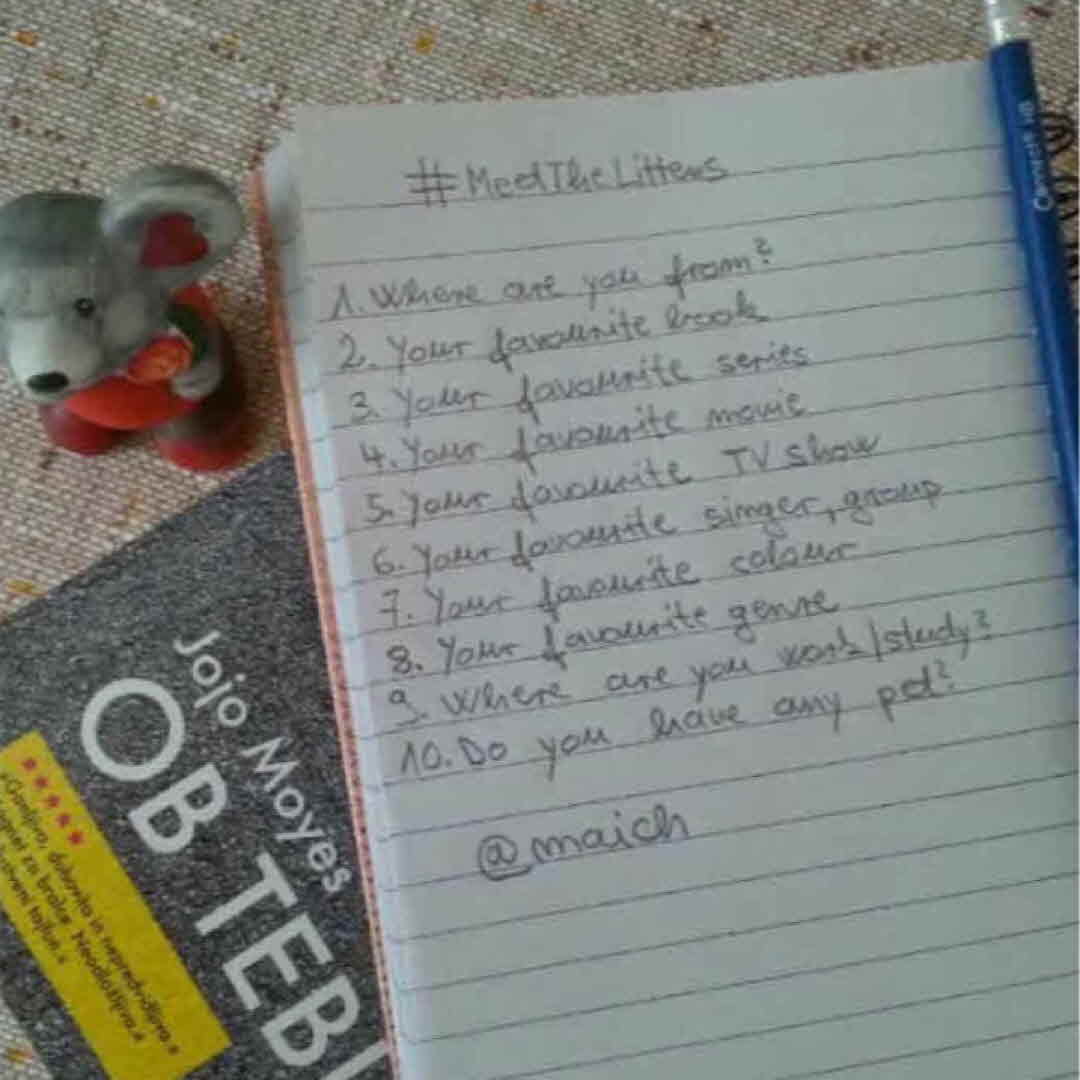 #MeetTheLitters
1. Where are you from?
2. Your favourite book
3. Your favourite series
4. Your favourite movie
5. Your favourite TV show
6. Your favourite singer, group
7. Your favourite colour
8. Your favourite genre
9. Where are you work/study?
10. Do you have any pet?
@maich
Jojo Moyes
OB TEBI
»Ganljivo, duhovito in nepredvidljivo.«
za branje.